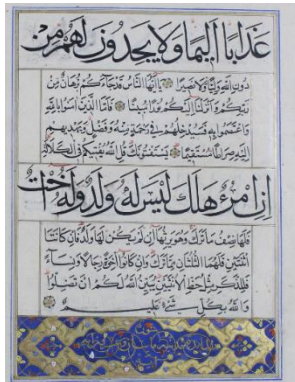 عَذَابًا أَلِيمًا وَلَا يَجِدُونَ لَهُمْ مِنْ
دُونِ اللَّهِ وَلِيًّا وَلَا نَصِيرًا يَا أَيُّهَا النَّاسُ قَدْ جَاءَكُمْ بُرْهَانٌ مِنْ
رَبِّكُمْ وَأَنْزَلْنَا إِلَيْكُمْ نُورًا مُبِينًا فَأَمَّا الَّذِينَ آمَنُوا بِاللَّهِ
وَاعْتَصَمُوا بِهِ فَسَيُدْخِلُهُمْ فِي رَحْمَةٍ مِنْهُ وَفَضْلٍ وَيَهْدِيهِمْ
إِلَيْهِ صِرَاطًا مُسْتَقِيمًا يَسْتَفْتُونَكَ قُلِ اللَّهُ يُفْتِيكُمْ فِي الْكَلَالَةِ
إِنِ امْرُؤٌ هَلَكَ لَيْسَ لَهُ وَلَدٌ وَلَهُ أُخْتٌ
فَلَهَا نِصْفُ مَا تَرَكَ وَهُوَ يَرِثُهَا إِنْ لَمْ يَكُنْ لَهَا وَلَدٌ فَإِنْ كَانَتَا
اثْنَتَيْنِ فَلَهُمَا الثُّلُثَانِ مِمَّا تَرَكَ وَإِنْ كَانُوا إِخْوَةً رِجَالًا وَنِسَاءً
فَلِلذَّكَرِ مِثْلُ حَظِّ الْأُنْثَيَيْنِ يُبَيِّنُ اللَّهُ لَكُمْ أَنْ تَضِلُّوا
وَاللَّهُ بِكُلِّ شَيْءٍ عَلِيمٌ